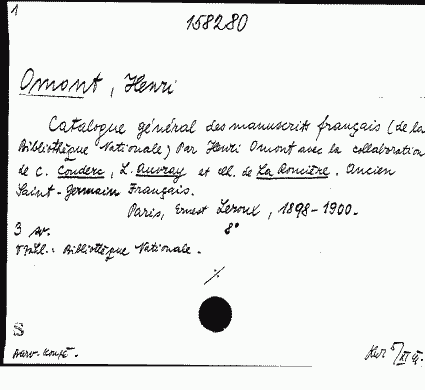 1
158280
Omont, Henri
Catalogue général des manuscrits français (de la
Bibliothèque Nationale) Par Henri Omont avec la collaboration
de C. Couderc, L. Auvray et de La Roncière. Ancien
Saint-Germain Français.
Paris, Ernest Leroux, 1898-1900.
3 8°
Bibliothèque Nationale.
S